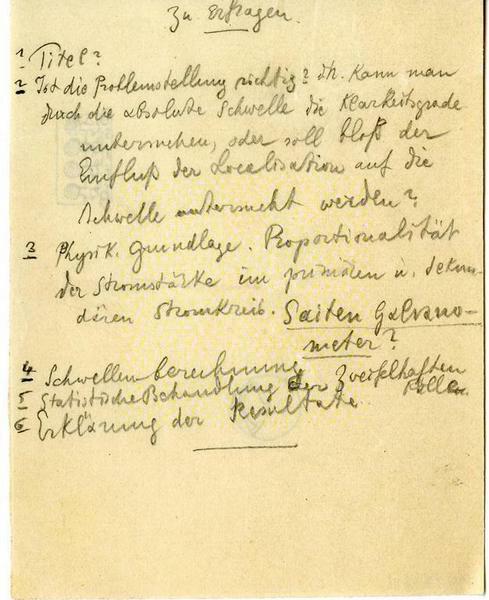 Zu erfragen.
1 Titel?
2 Ist die Problemstellung richtig? dh. kann man
durch die absolute Schwelle die Klarheitsgrade
untersuchen, oder soll bloß der
Einfluß der Localisation auf die
Schwelle untersucht werden?
3 Physik. Grundlage. Proportionalität
der Stromstärke im primären u. sekun-
dären Stromkreis. Saiten Galvano-
meter?
4 Schwellenberechnung
5 Statistische Behandlung der zweifelhaften Fälle.
6 Erklärung der Resultate